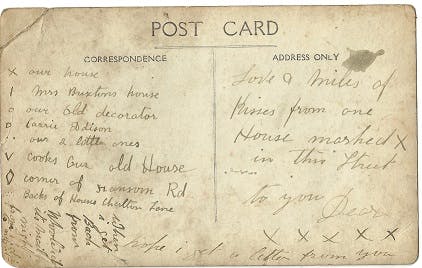 POST CARD
CORRESPONDENCE
ADDRESS ONLY
x our house
| Mrs Buxtons house
o our Old decorator
o Carrie Edison
our 2 little ones
v Cooks Our old House
◇ corner of Ransom Rd
Backs of Houses Charlton Lane
when
i get
Back
from
Woolwich
Love & Miles of
Kisses from one
House marked x
in this Street
to you Dear
x x x x x
hope i get a letter from you